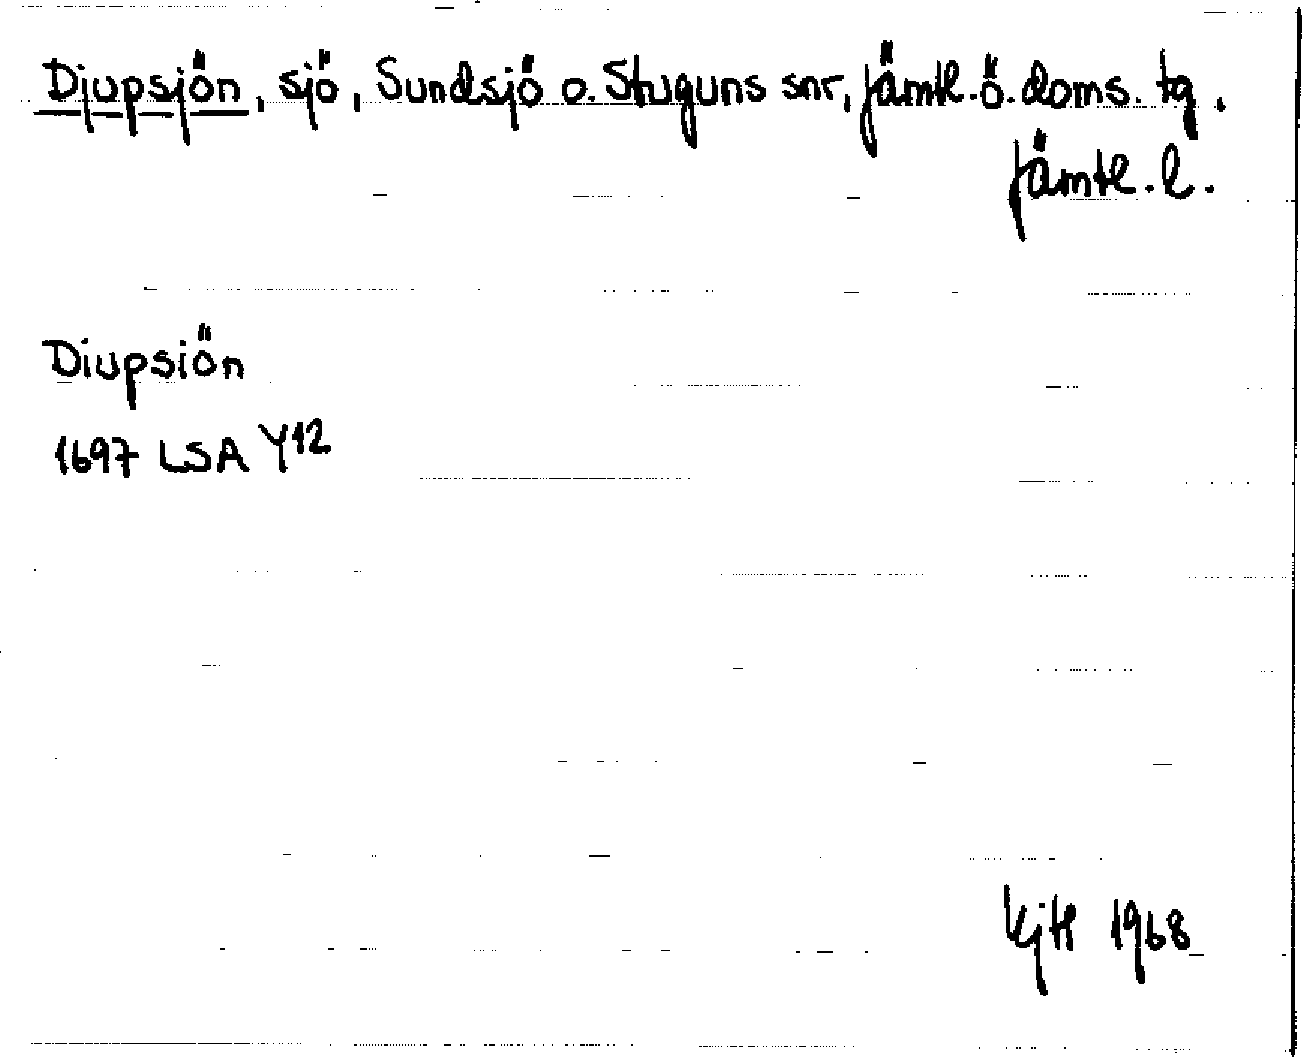 Djupsjön, sjö, Sundsjö o. Stuguns snr, Jämtl. ö. doms. tg.
Jämtl. l.
Diupsiön
1697 LSA Y12
KjH 1968